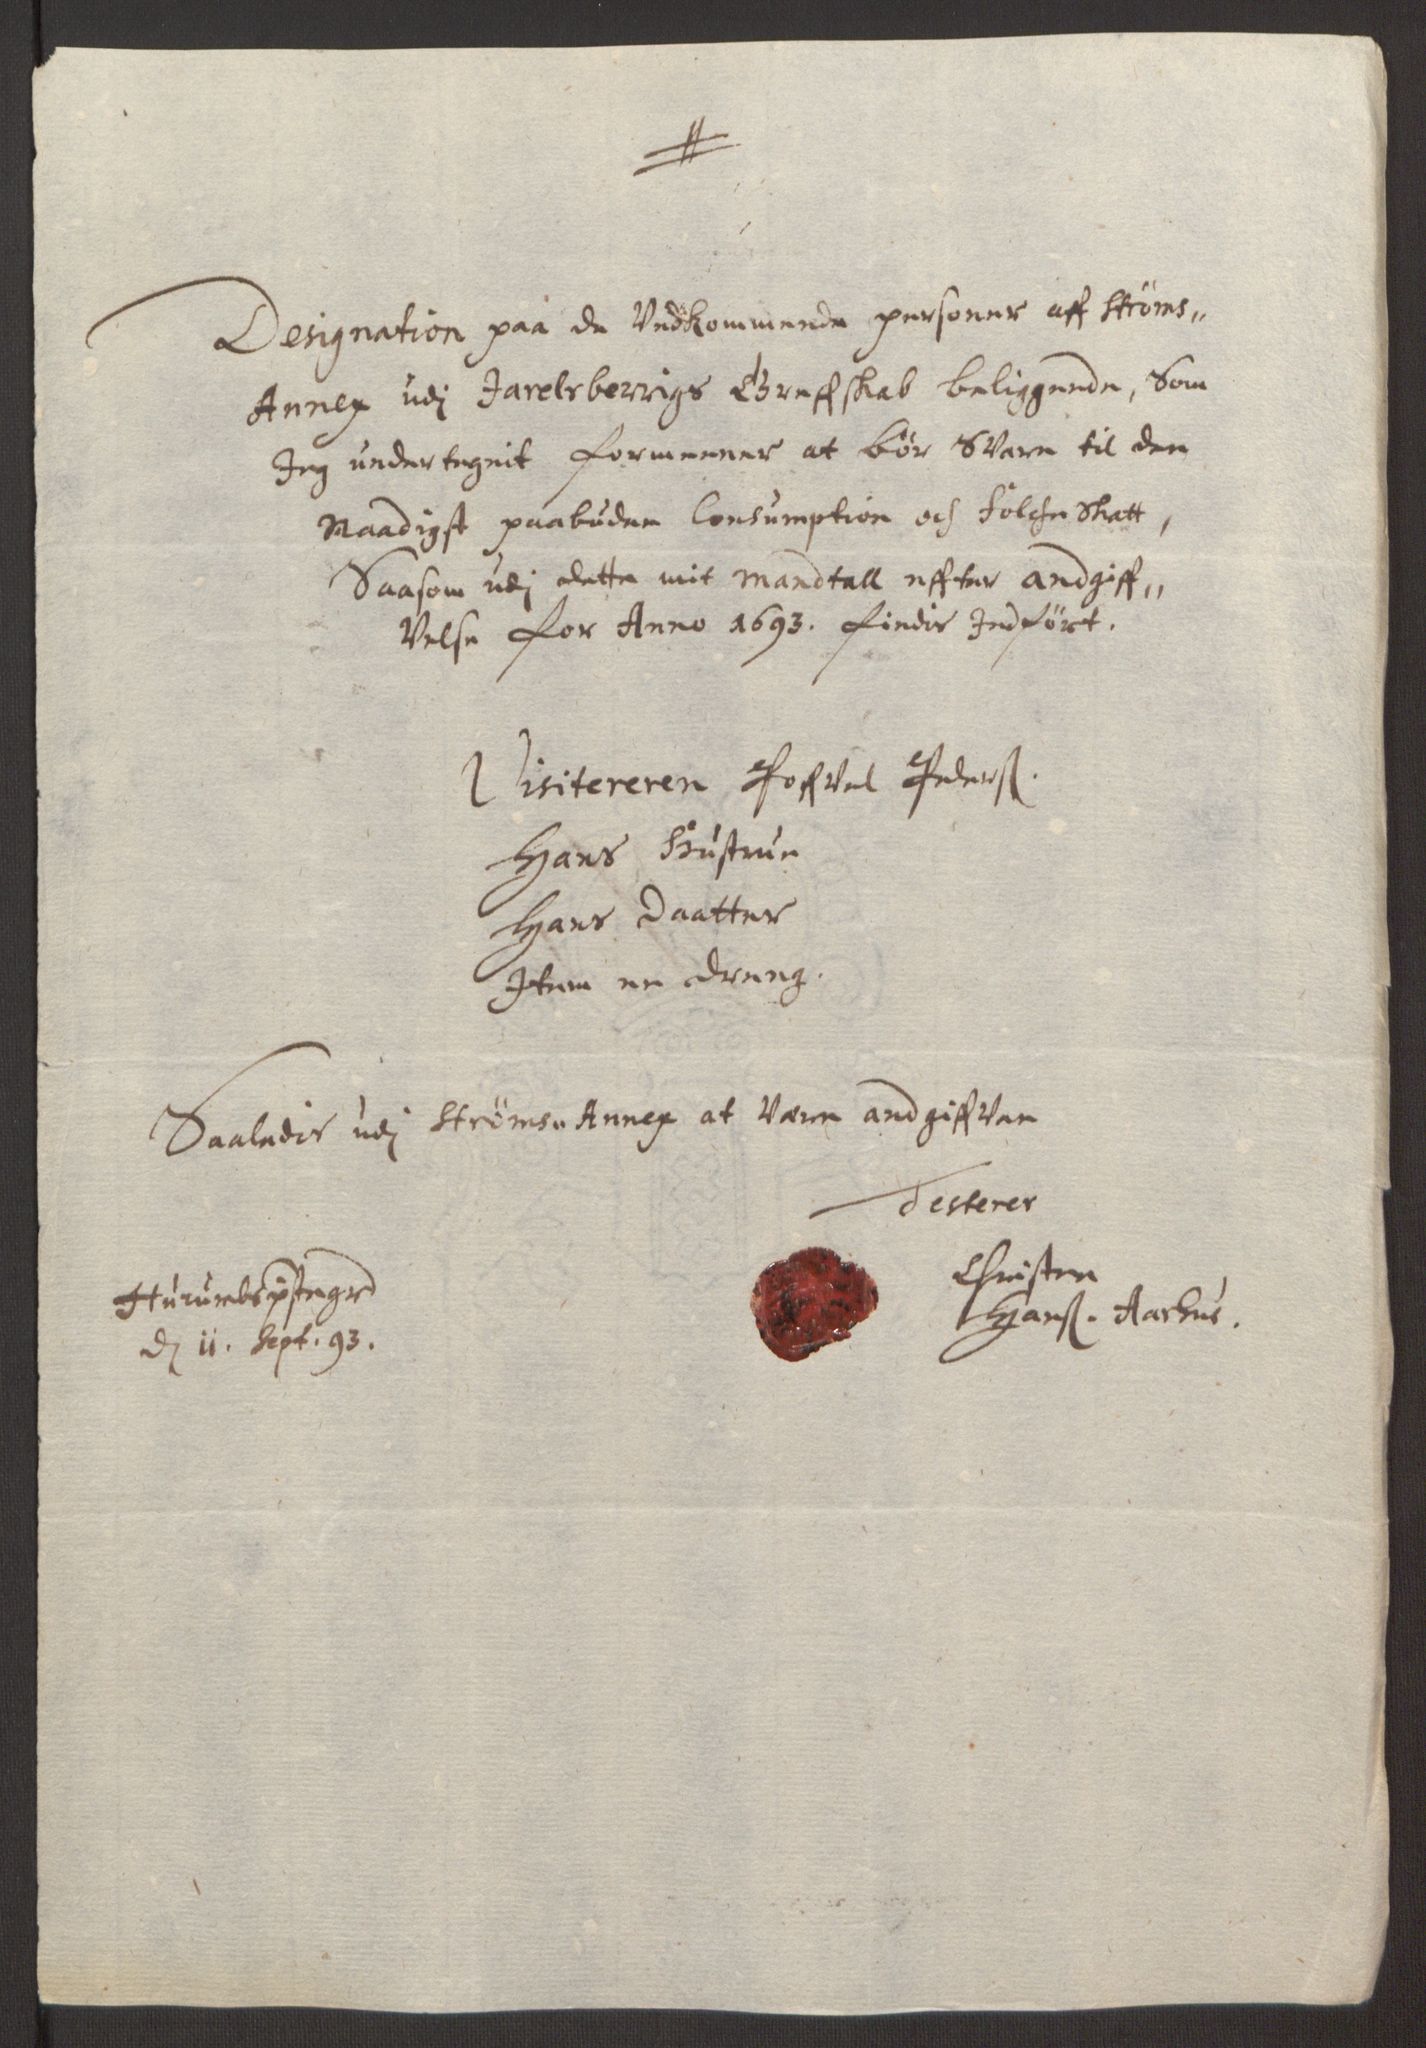 Designation paa de Vedkommende personer aff Ströms,,
Annex udj Jarelsberrigs Greffskab beliggende, Som
Jeg undertegnit formeener at bör Svare til den
Naadigst paabudne Consumption och Folche Skatt,
Saasom udj dette mit Mandtall effter andgiff,,
Velse for Anno 1693. findis Indfört.
Visitereren Poffvel Pederß.
Hans Hustrue
Hans Daatter
Item en dreng.
Saaledis udj Ströms,, Annex at Være andgiffven
Testerer
Christen
Hanß. Aarhus.
Hurumbs
d 11. Sept. 93.